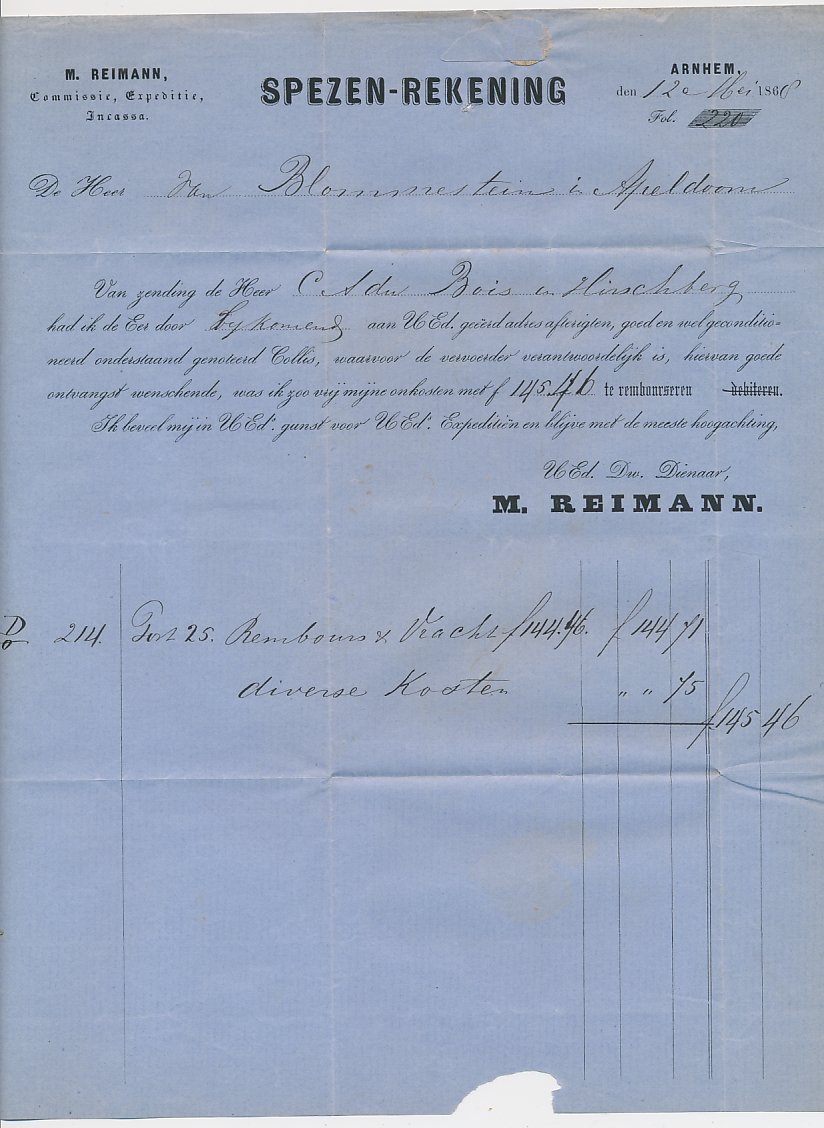 M. REIMANN,
Commissie, Expeditie,
Incassa.
SPEZEN-REKENING
ARNHEM,
den 12e Mei 1868
Fol. 220
De Heer Van Blommestein in Apeldoorn
Van zending de Heer C A du Bois in Hirschberg
had ik de Eer door bykomend aan UEd. geëerd adres afterigten, goed en wel geconditio=
neerd onderstaand genoteerd Collis, waarvoor de vervoerder verantwoordelijk is, hiervan goede
ontvangst wenschende, was ik zoo vrij mijne onkosten met f 145.46 te rembourseren debiteren.
Ik beveel mij in UEds. gunst voor UEds. Expeditiën en blijve met de meeste hoogachting,
UEd. Dw. Dienaar,
M. REIMANN.
D 214. Port 25. Rembours & Vracht f144.46. f 144 71
diverse Kosten " " 75
f 145 46